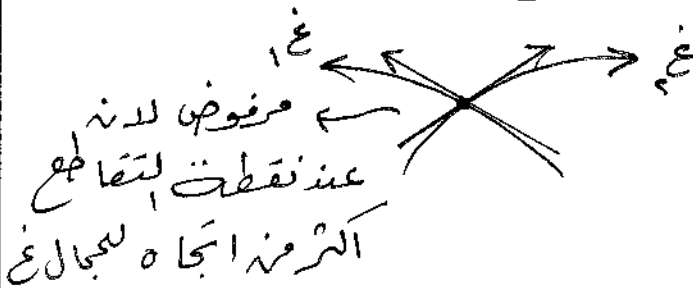 غ١
غ٢
← مرفوض لان
عند نقطة التقاطع
اكثر من اتجاه للمجال غ